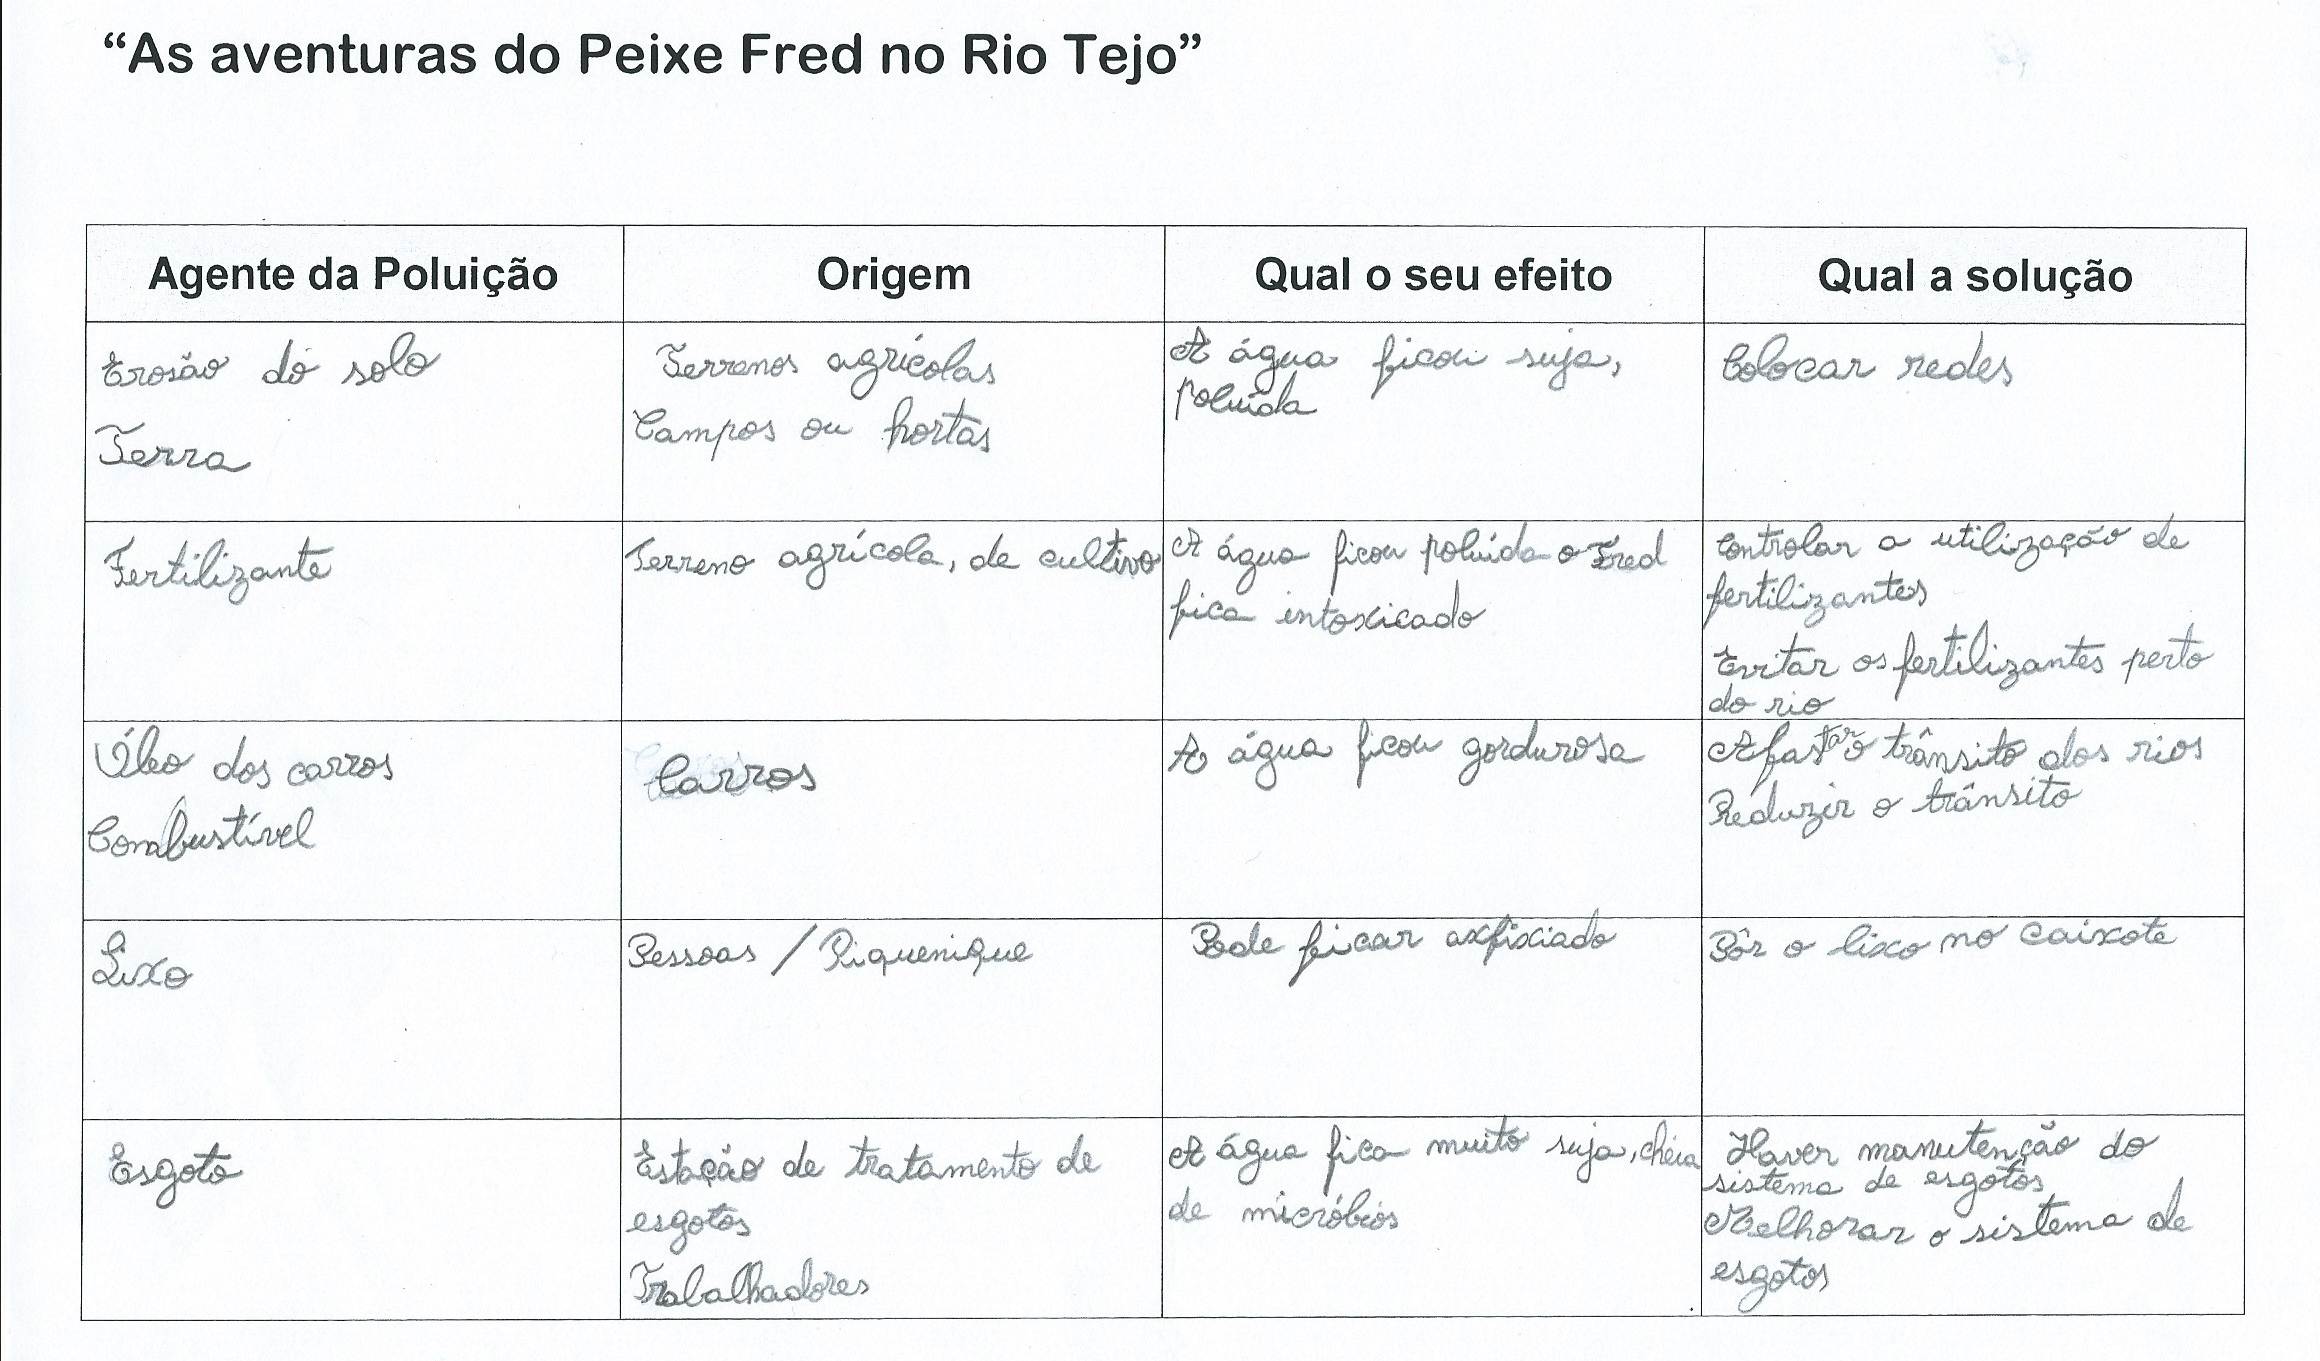 “As aventuras do Peixe Fred no Rio Tejo”
Agente da Poluição
Origem
Qual o seu efeito
Qual a solução
Erosão do solo
Terra
Terrenos agrícolas
Campos ou hortas
A água ficou suja,
poluída
Colocar redes
Fertilizante
Terreno agrícola, de cultivo
A água ficou poluída o Fred
fica intoxicado
Controlar a utilização de
fertilizantes
Evitar os fertilizantes perto
do rio
Óleo dos carros
Combustível
Carros
A água ficou gordurosa
Afastar o trânsito dos rios
Reduzir o trânsito
Lixo
Pessoas / Piquenique
Pode ficar axfixiado
Pôr o lixo no caixote
Esgoto
Estação de tratamento de
esgotos
Trabalhadores
A água fica muito suja, cheia
de micróbios
Haver manutenção do
sistema de esgotos
Melhorar o sistema de
esgotos